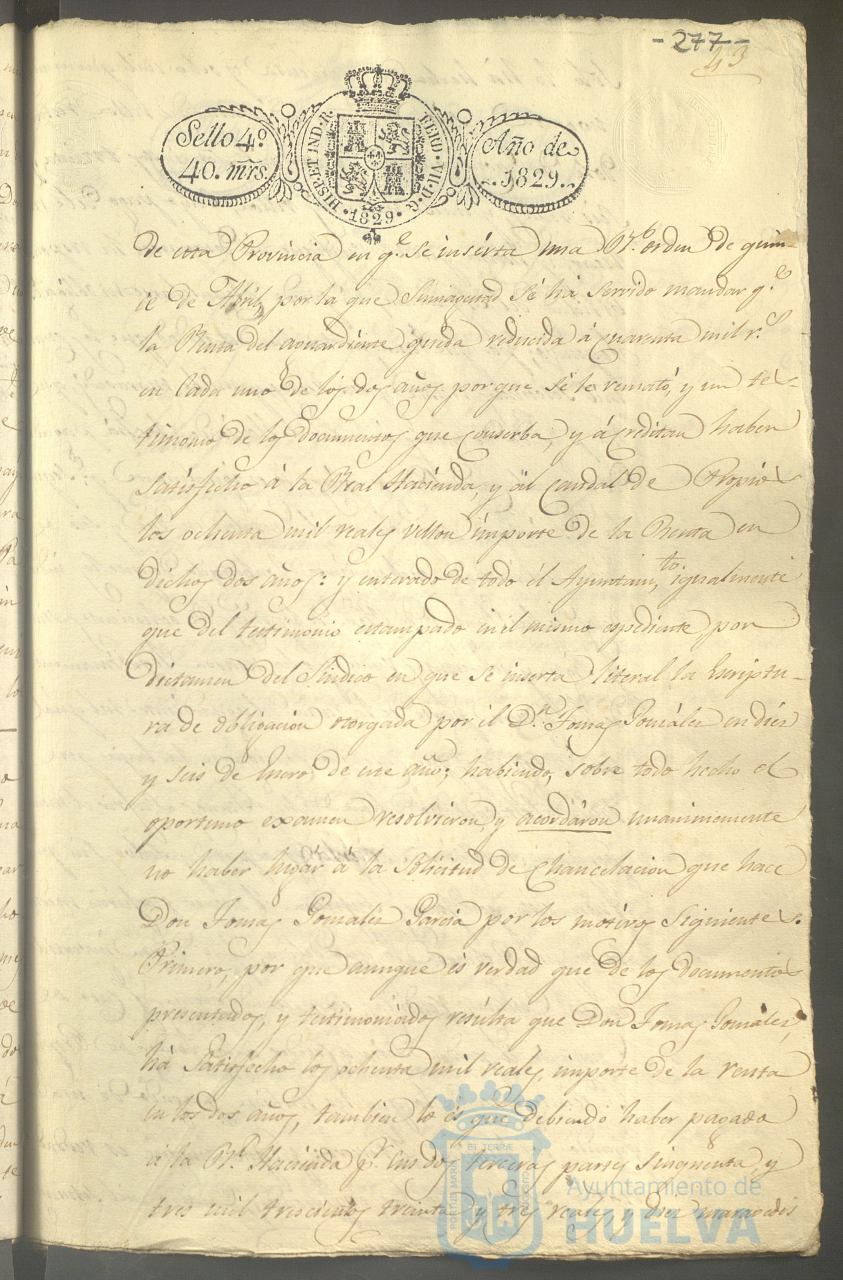 -277-
43
Sello 4º
40. mrs.
HISP. ET IND. R. FERD. VII. D. G. 1829.
Año de
1829.
de esta Provincia en q.e se insérta una Rl. orden de quin-
ce de Abril, por la que Su magestad se há servido mandar q.e
la Renta del aguardiente queda reducida á cuarenta mil r.s
en cada uno de los dos años porque se le remató, y un tes-
timonio de los documentos que conserba, y ácreditan haber
satisfecho á la Real Hacienda, y ál caudal de Propios
los ochenta mil reales vellon ímporte de la Renta en
dichos dos años: y enterado de todo él Ayuntam.to igualmente
que del testimonio estampado en él mismo espediente por
dictamen del Sindico en que se inserta literal la Escriptu-
ra de obligacion otorgada por él D.n Tomas González en diez
y seis de Enero de este año; habiendo sobre todo hecho el
oportuno examen resolvieron, y acordáron unanimemente
no haber lugar á la solicitud de Chancelacion que hace
Don Tomas Gonzalez Garcia por los motivos siguientes.
Primero, por que aunque és verdad que de los documentos
presentados, y testimoniados resúlta que Don Tomas González,
há satisfecho los ochenta mil reales, importe de la renta
en los dos años, tambien lo és que debiendo haber pagado
á la Rl. Hacienda p.r sus dos terceras partes sinquenta, y
tres mil trescientos treinta y tres reales, y diez maravedis
Ayuntamiento de
HUELVA